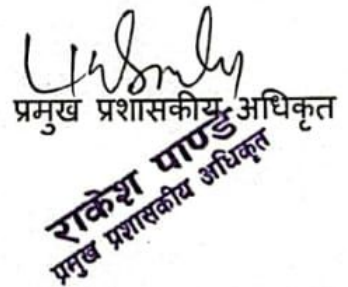 प्रमुख प्रशासकीय अधिकृत
राकेश पाण्डे
प्रमुख प्रशासकीय अधिकृत